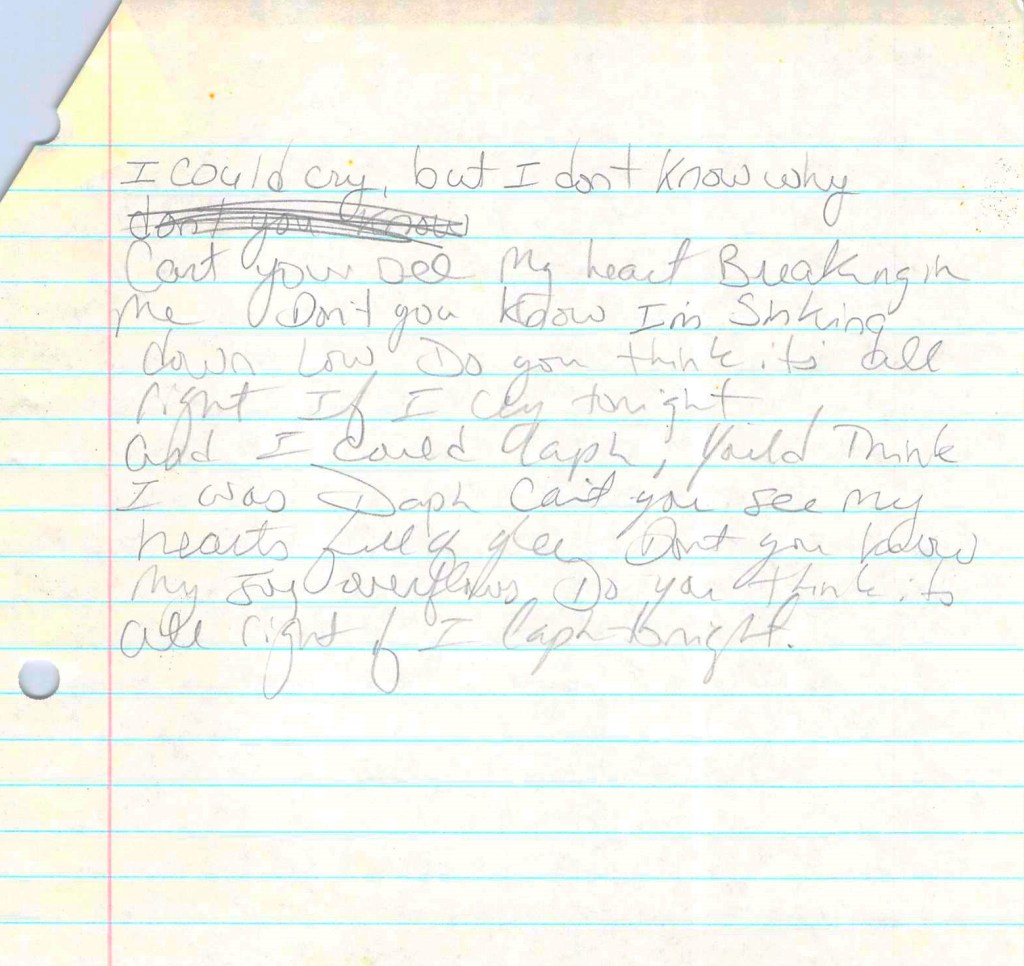 I could cry, but I dont know why
don't you know
Cant you see My heart Breaking in
Me Don't you know I'm Sinking
down Low Do you think its all
right If I cry tonight
and I could laph, You'ld Think
I was Daph Can't you see my
hearts full of glee, Dont you know
My joy overflows, Do you think its
all right if I laph tonight.